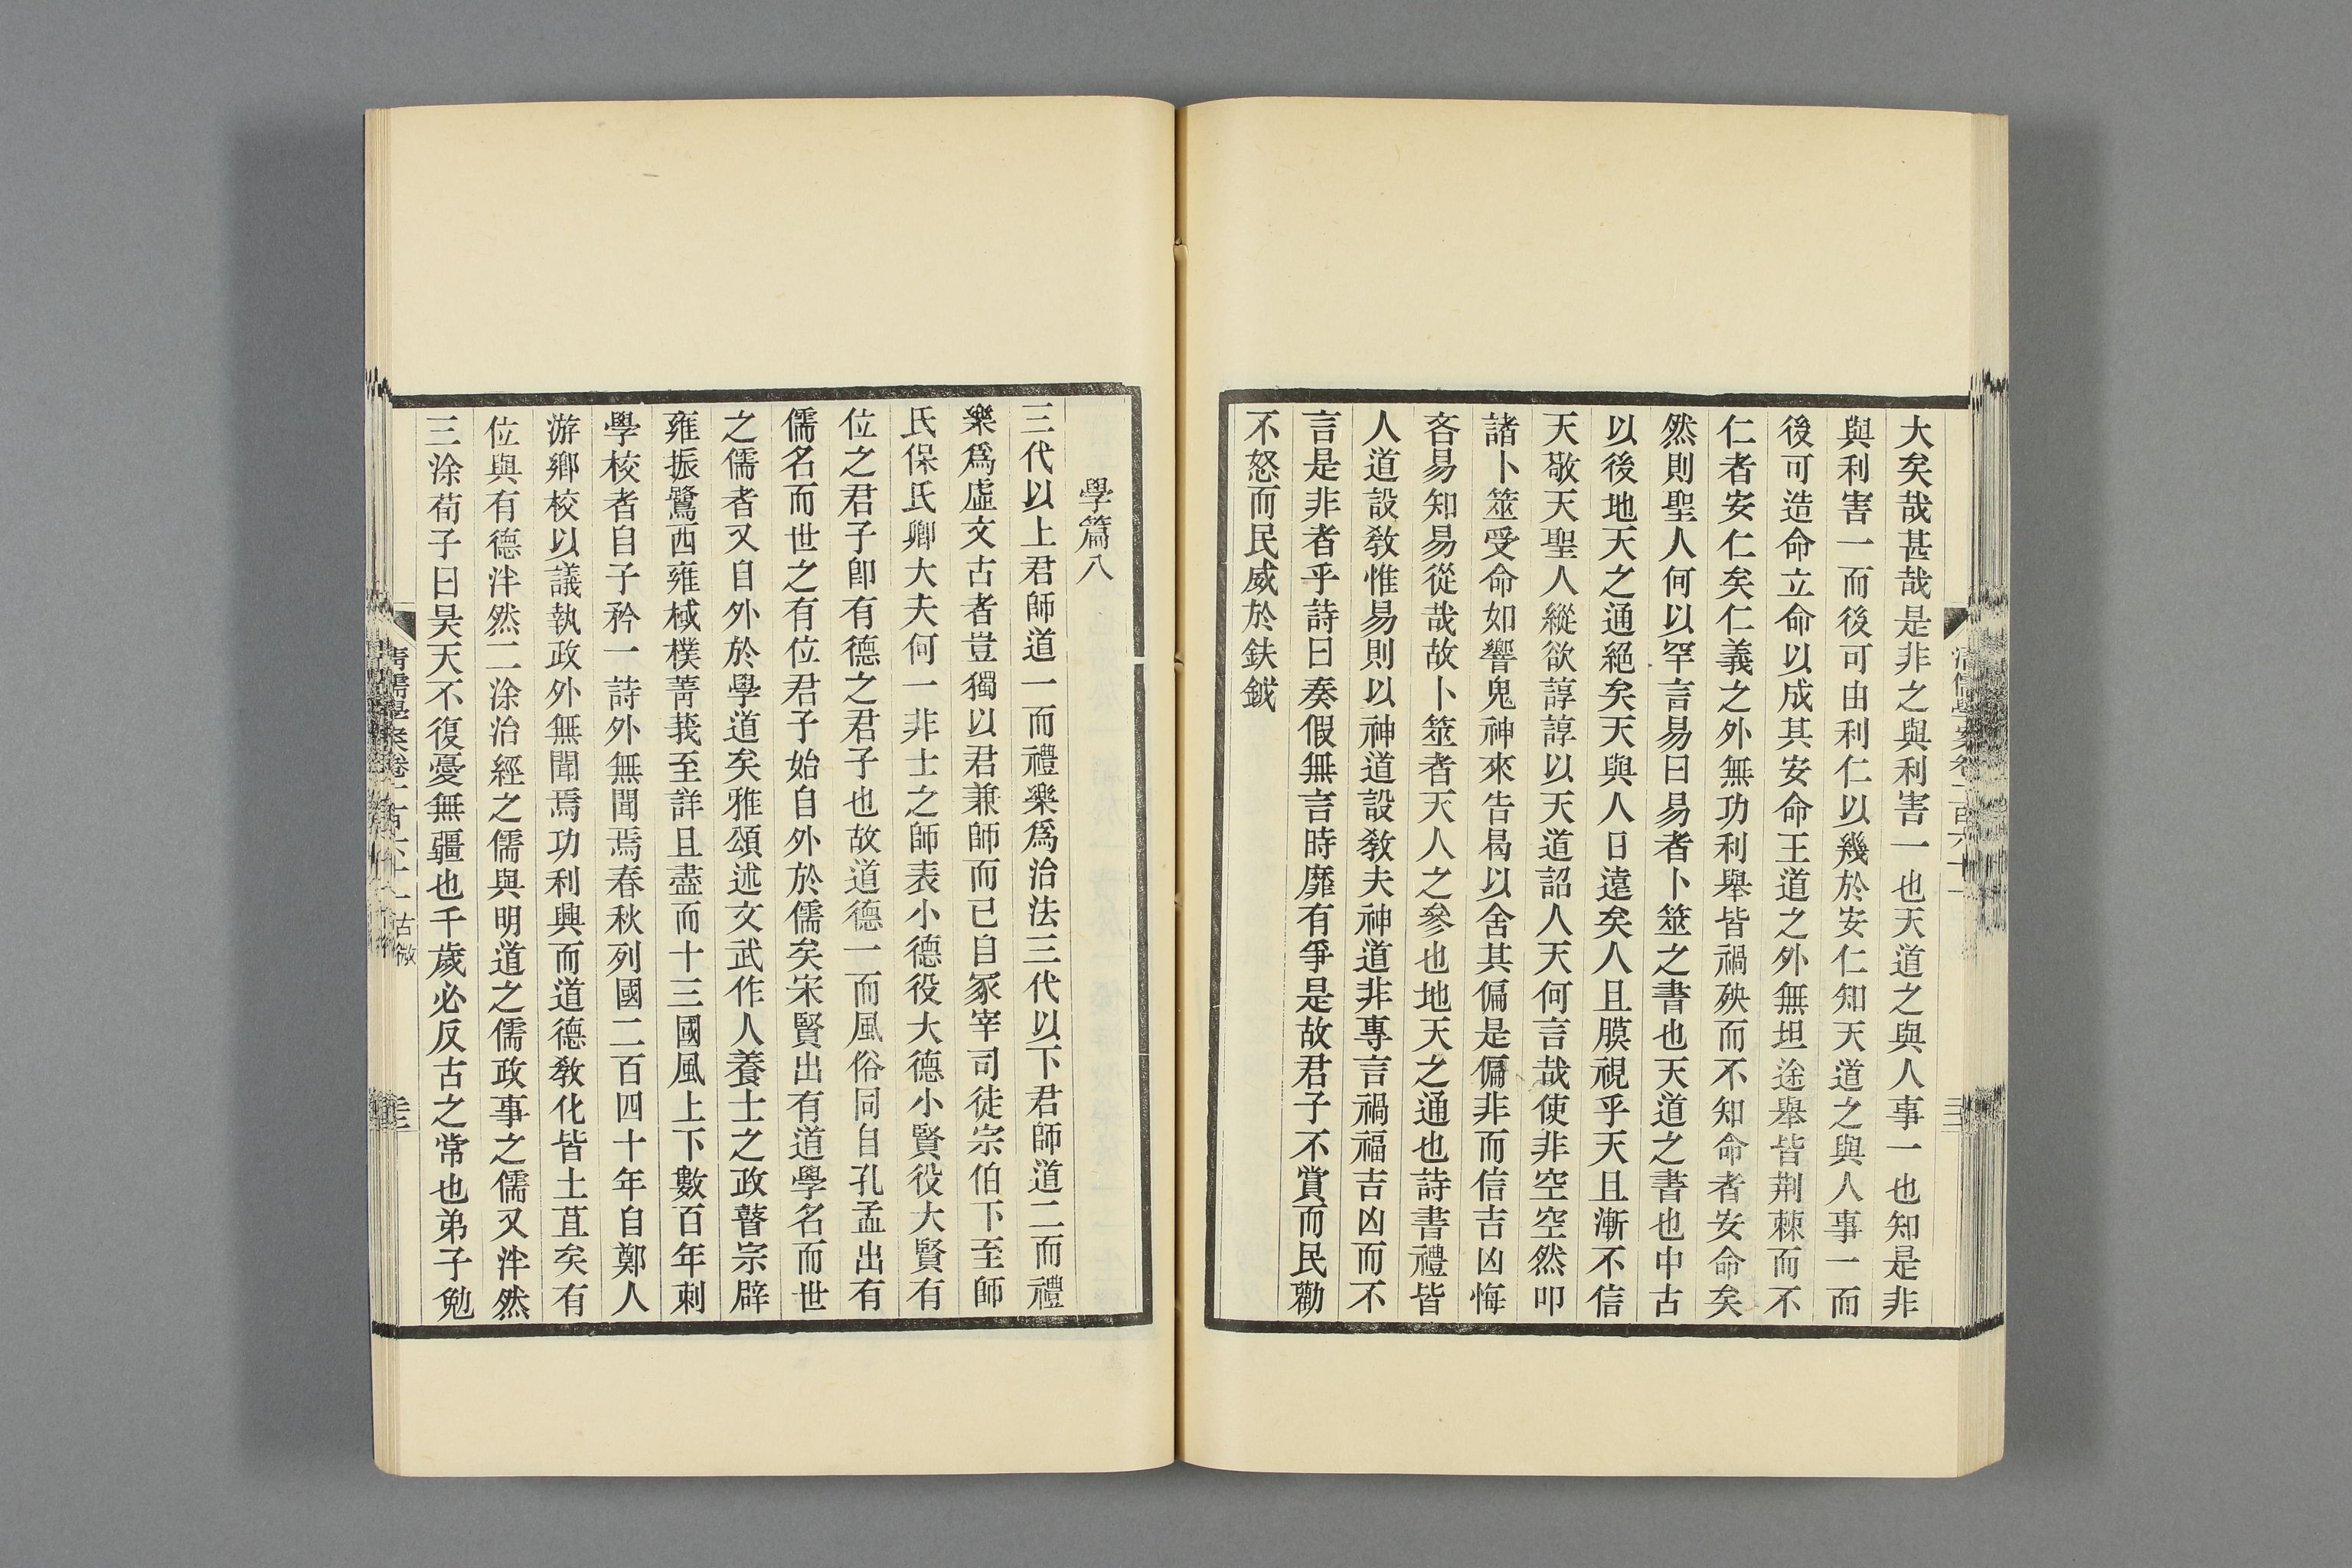 大矣哉甚哉是非之與利害一也天道之與人事一也知是非
與利害一而後可由利仁以幾於安仁知天道之與人事一而
後可造命立命以成其安命王道之外無坦途舉皆荆棘而不
仁者安仁矣仁義之外無功利舉皆禍殃而不知命者安命矣
然則聖人何以罕言易曰易者卜筮之書也天道之書也中古
以後地天之通絕矣天與人日遠矣人且膜視乎天且漸不信
天敬天聖人縱欲諄諄以天道詔人天何言哉使非空空然叩
諸卜筮受命如響鬼神來告曷以舍其偏是偏非而信吉凶悔
吝易知易從哉故卜筮者天人之參也地天之通也詩書禮皆
人道設敎惟易則以神道設敎夫神道非專言禍福吉凶而不
言是非者乎詩曰奏假無言時靡有爭是故君子不賞而民勸
不怒而民威於鈇鉞
學篇八
三代以上君師道一而禮樂爲治法三代以下君師道二而禮
樂爲虛文古者豈獨以君兼師而已自冢宰司徒宗伯下至師
氏保氏卿大夫何一非士之師表小德役大德小賢役大賢有
位之君子卽有德之君子也故道德一而風俗同自孔孟出有
儒名而世之有位君子始自外於儒矣宋賢出有道學名而世
之儒者又自外於學道矣雅頌述文武作人養士之政瞽宗辟
雍振鷺西雍棫樸菁莪至詳且盡而十三國風上下數百年刺
學校者自子矜一詩外無聞焉春秋列國二百四十年自鄭人
游鄉校以議執政外無聞焉功利興而道德敎化皆土苴矣有
位與有德泮然二涂治經之儒與明道之儒政事之儒又泮然
三涂荀子曰昊天不復憂無疆也千歲必反古之常也弟子勉
清儒學案卷一百六十一 古微